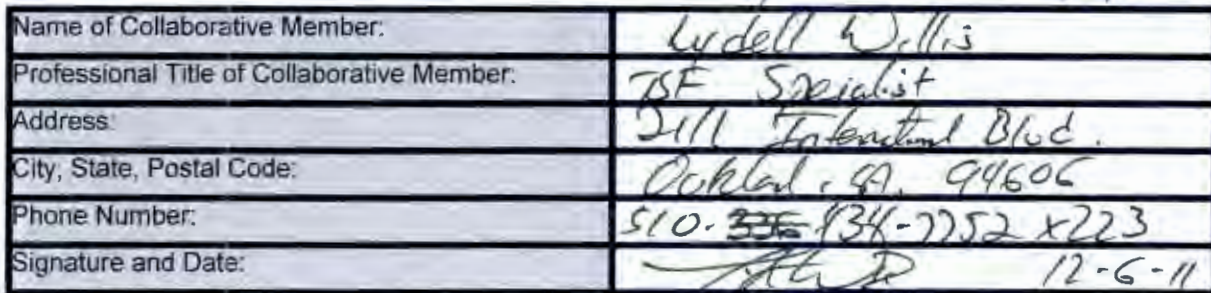 Name of Collaborative Member: Lydell Willis
Professional Title of Collaborative Member: Specialist
Address: 2111 International Blvd.
City, State, Postal Code: Oakland, CA. 94606
Phone Number: 510. 434-7752 x223
Signature and Date: 12-6-11